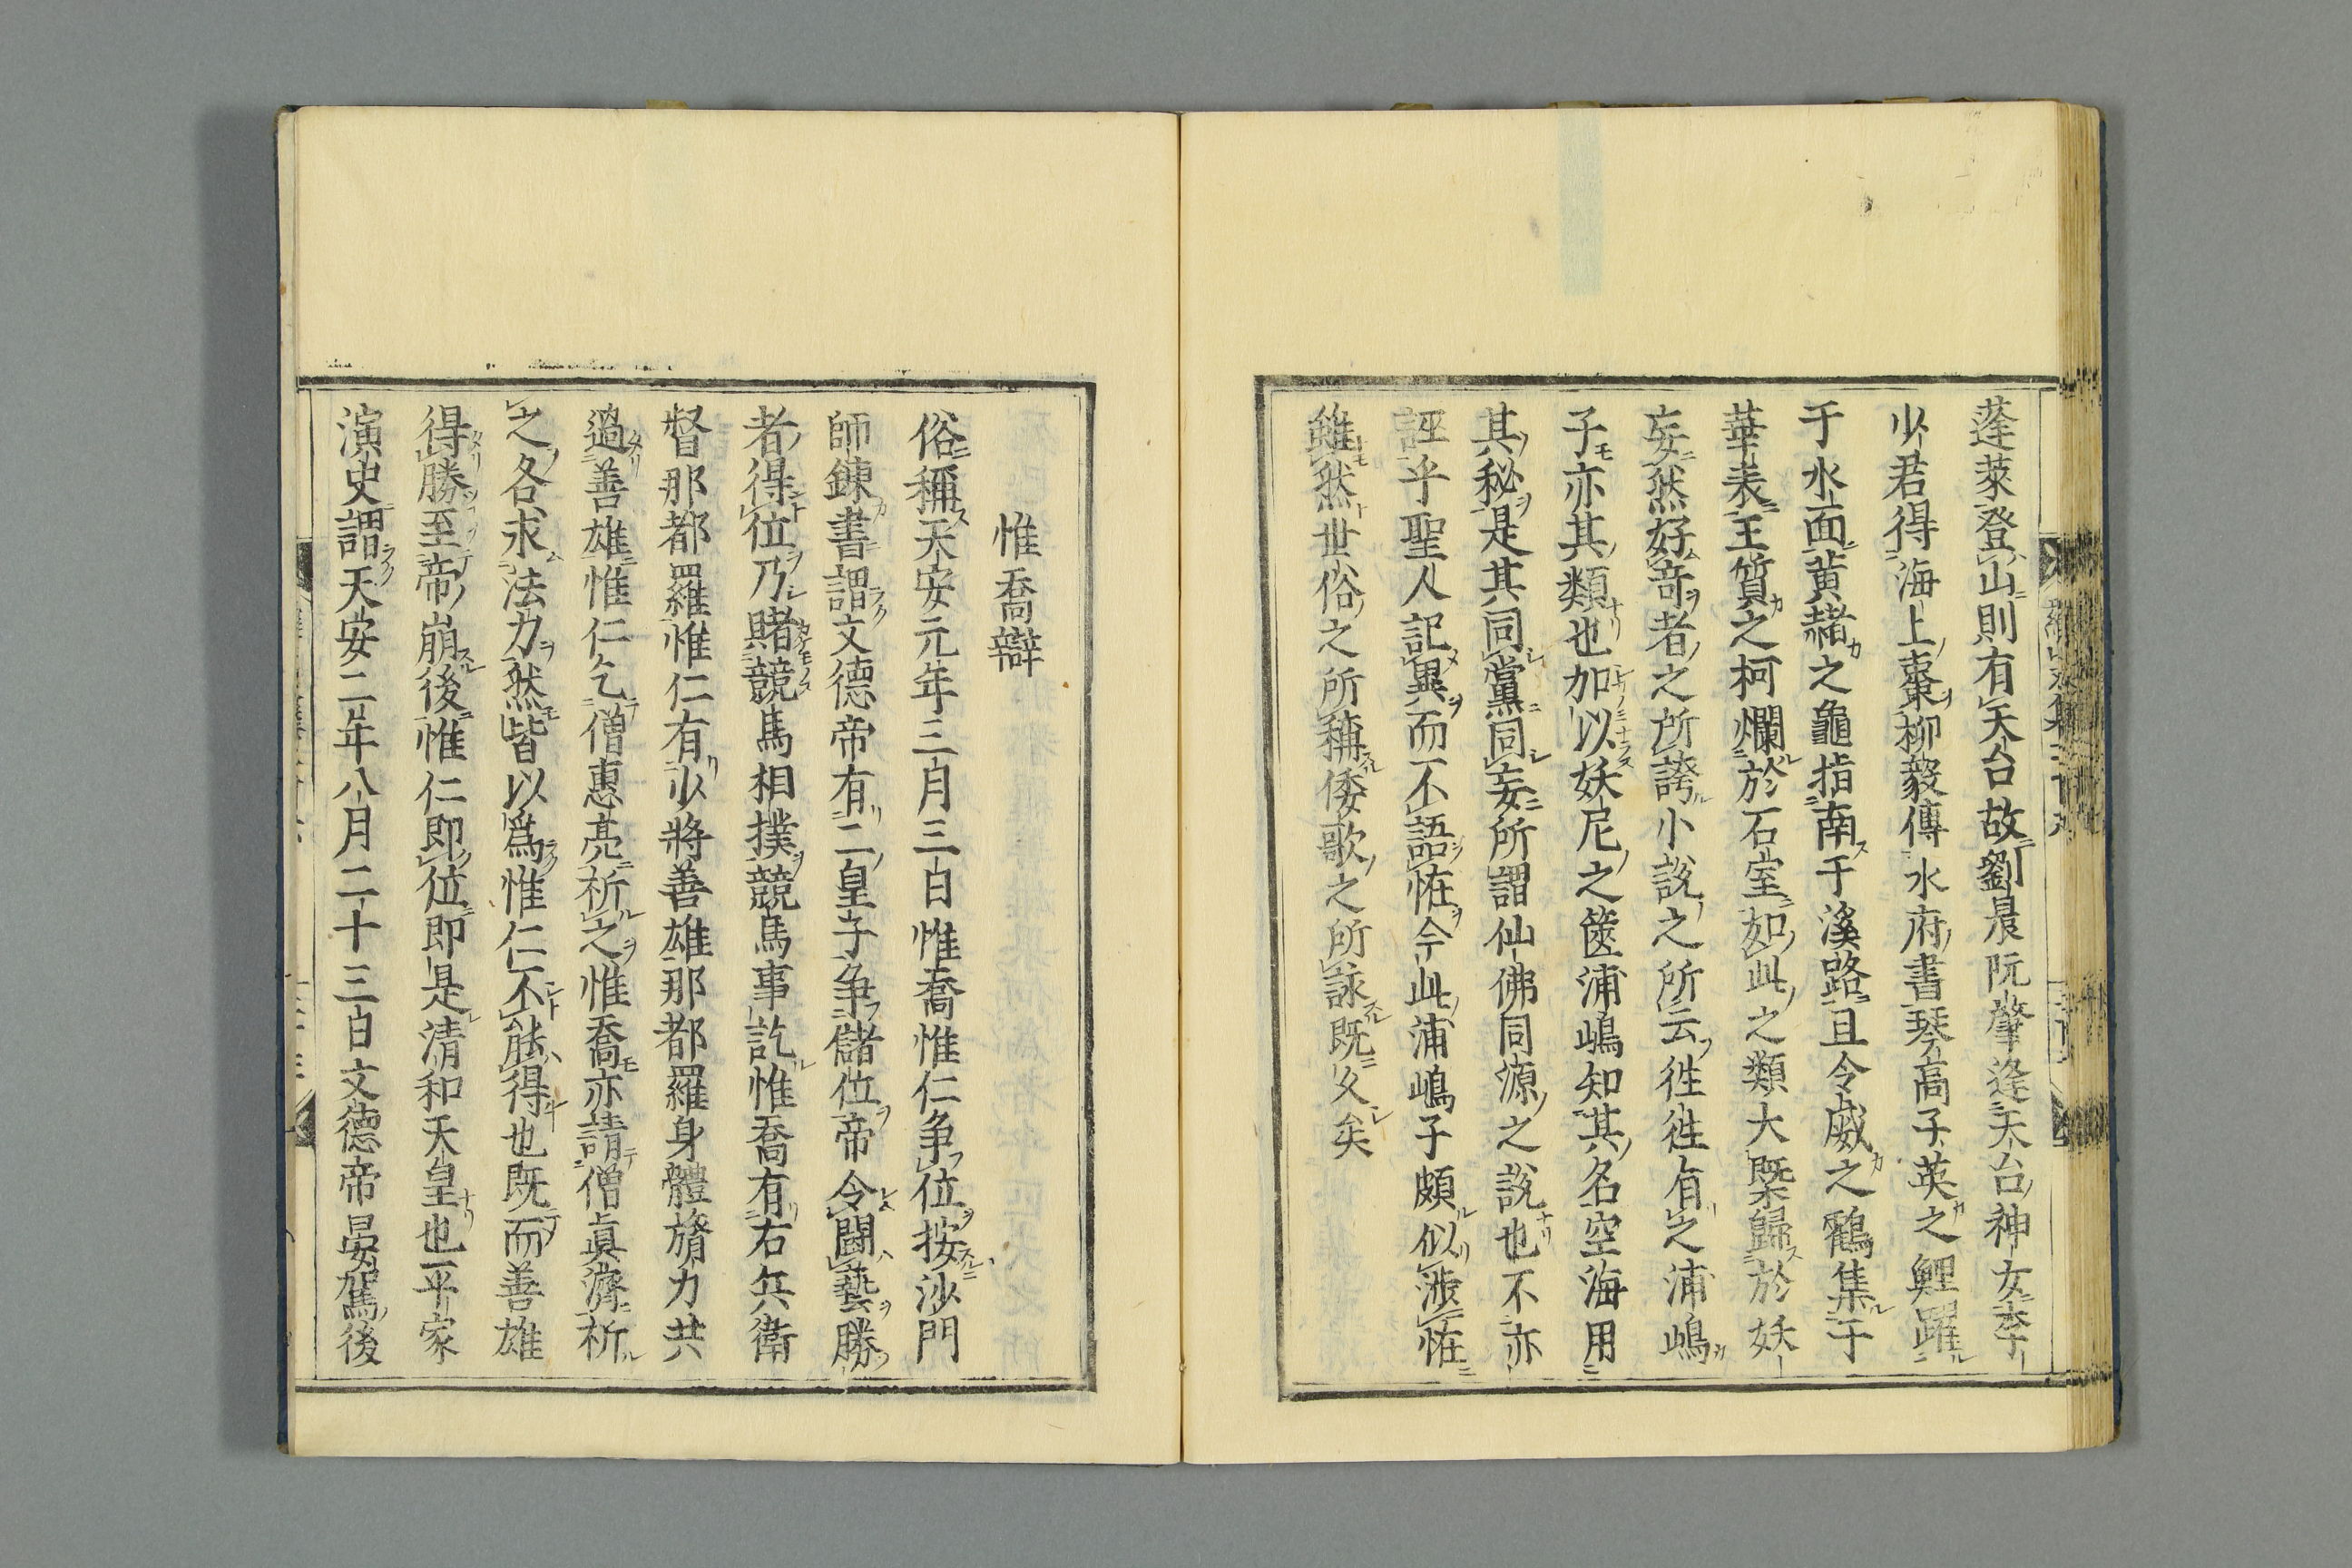 蓬萊登山則有天台故劉晨阮肇逢天台神女李
少君得海上棗柳毅傳水府書琴高子英之鯉躍
于水面黄赭之龜指南于溪路且令威之鶴集于
華表王質之柯爛於石室如此之類大槩歸於妖
妄然好奇者之所誇小說之所云徃徃有之浦嶋
子亦其類也加以妖尼之篋浦嶋知其名空海用
其秘是其同黨同妄所謂仙佛同源之說也不亦
誣乎聖人記異而不語恠今此浦嶋子頗似渉恠
雖然世俗之所稱倭歌之所詠既久矣
惟喬辯
俗稱天安元年三月三日惟喬惟仁争位按沙門
師錬書謂文德帝有二皇子争儲位帝令鬪藝勝
者得位乃賭競馬相撲競馬事訖惟喬有右兵衛
督那都羅惟仁有少將善雄那都羅身體膂力共
過善雄惟仁乞僧惠亮祈之惟喬亦請僧眞濟祈
之各求法力然皆以爲惟仁不能得也既而善雄
得勝至帝崩後惟仁即位即是清和天皇也平家
演史謂天安二年八月二十三日文德帝晏駕後